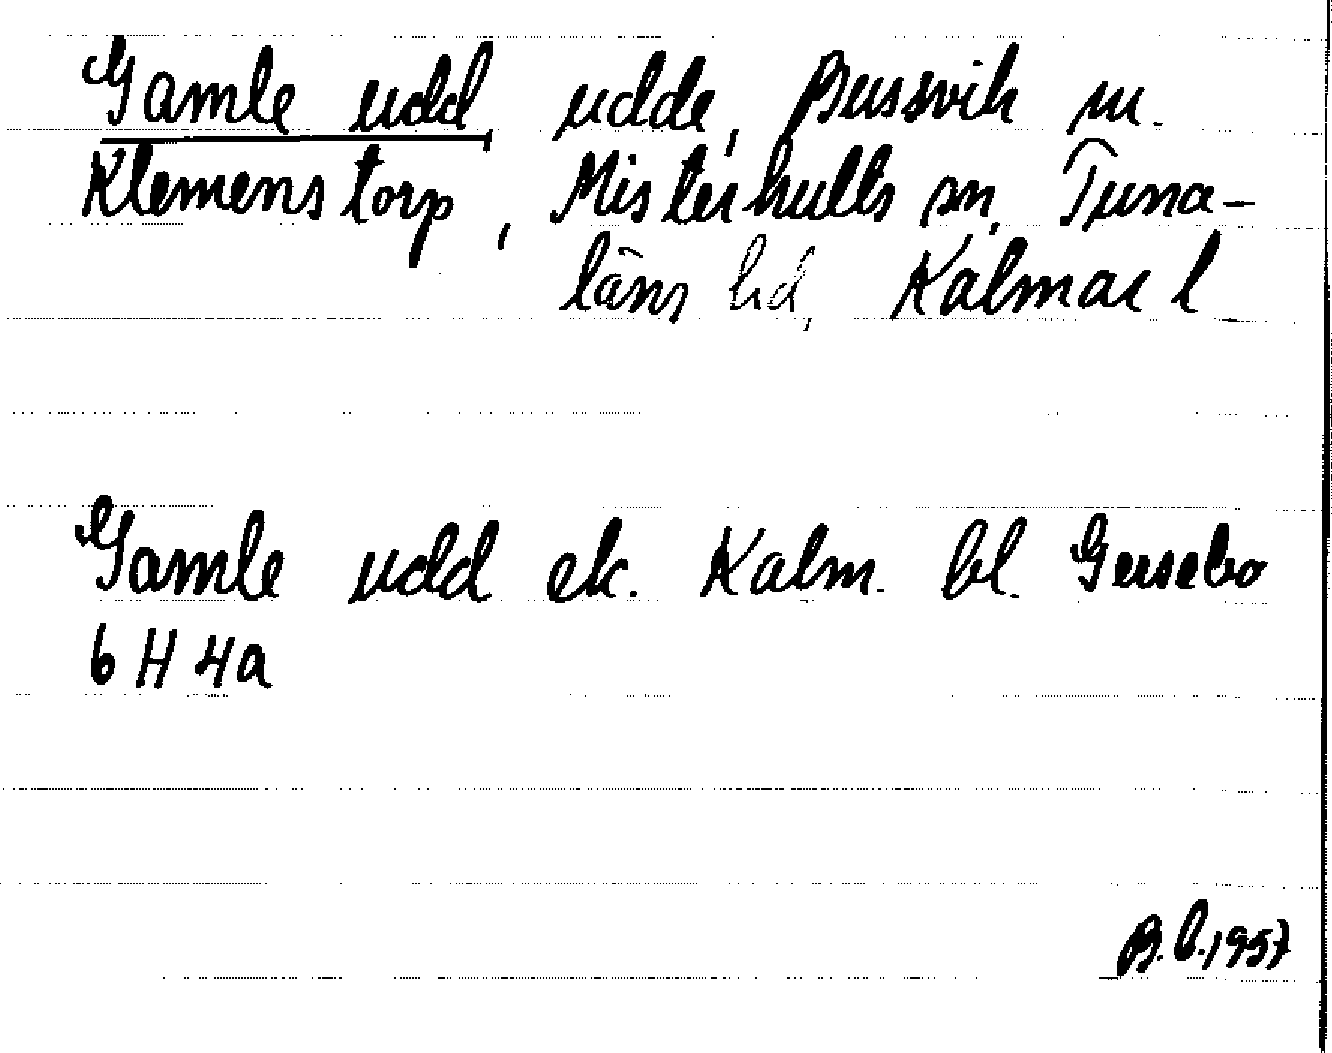 Gamle udd, udde, Bussvik m.
Klemenstorp, Misterhults sn, Tuna-
läns hd, Kalmar l
Gamle udd ek. Kalm. bl. Gersebo
6 H 4a
B.L. 1957